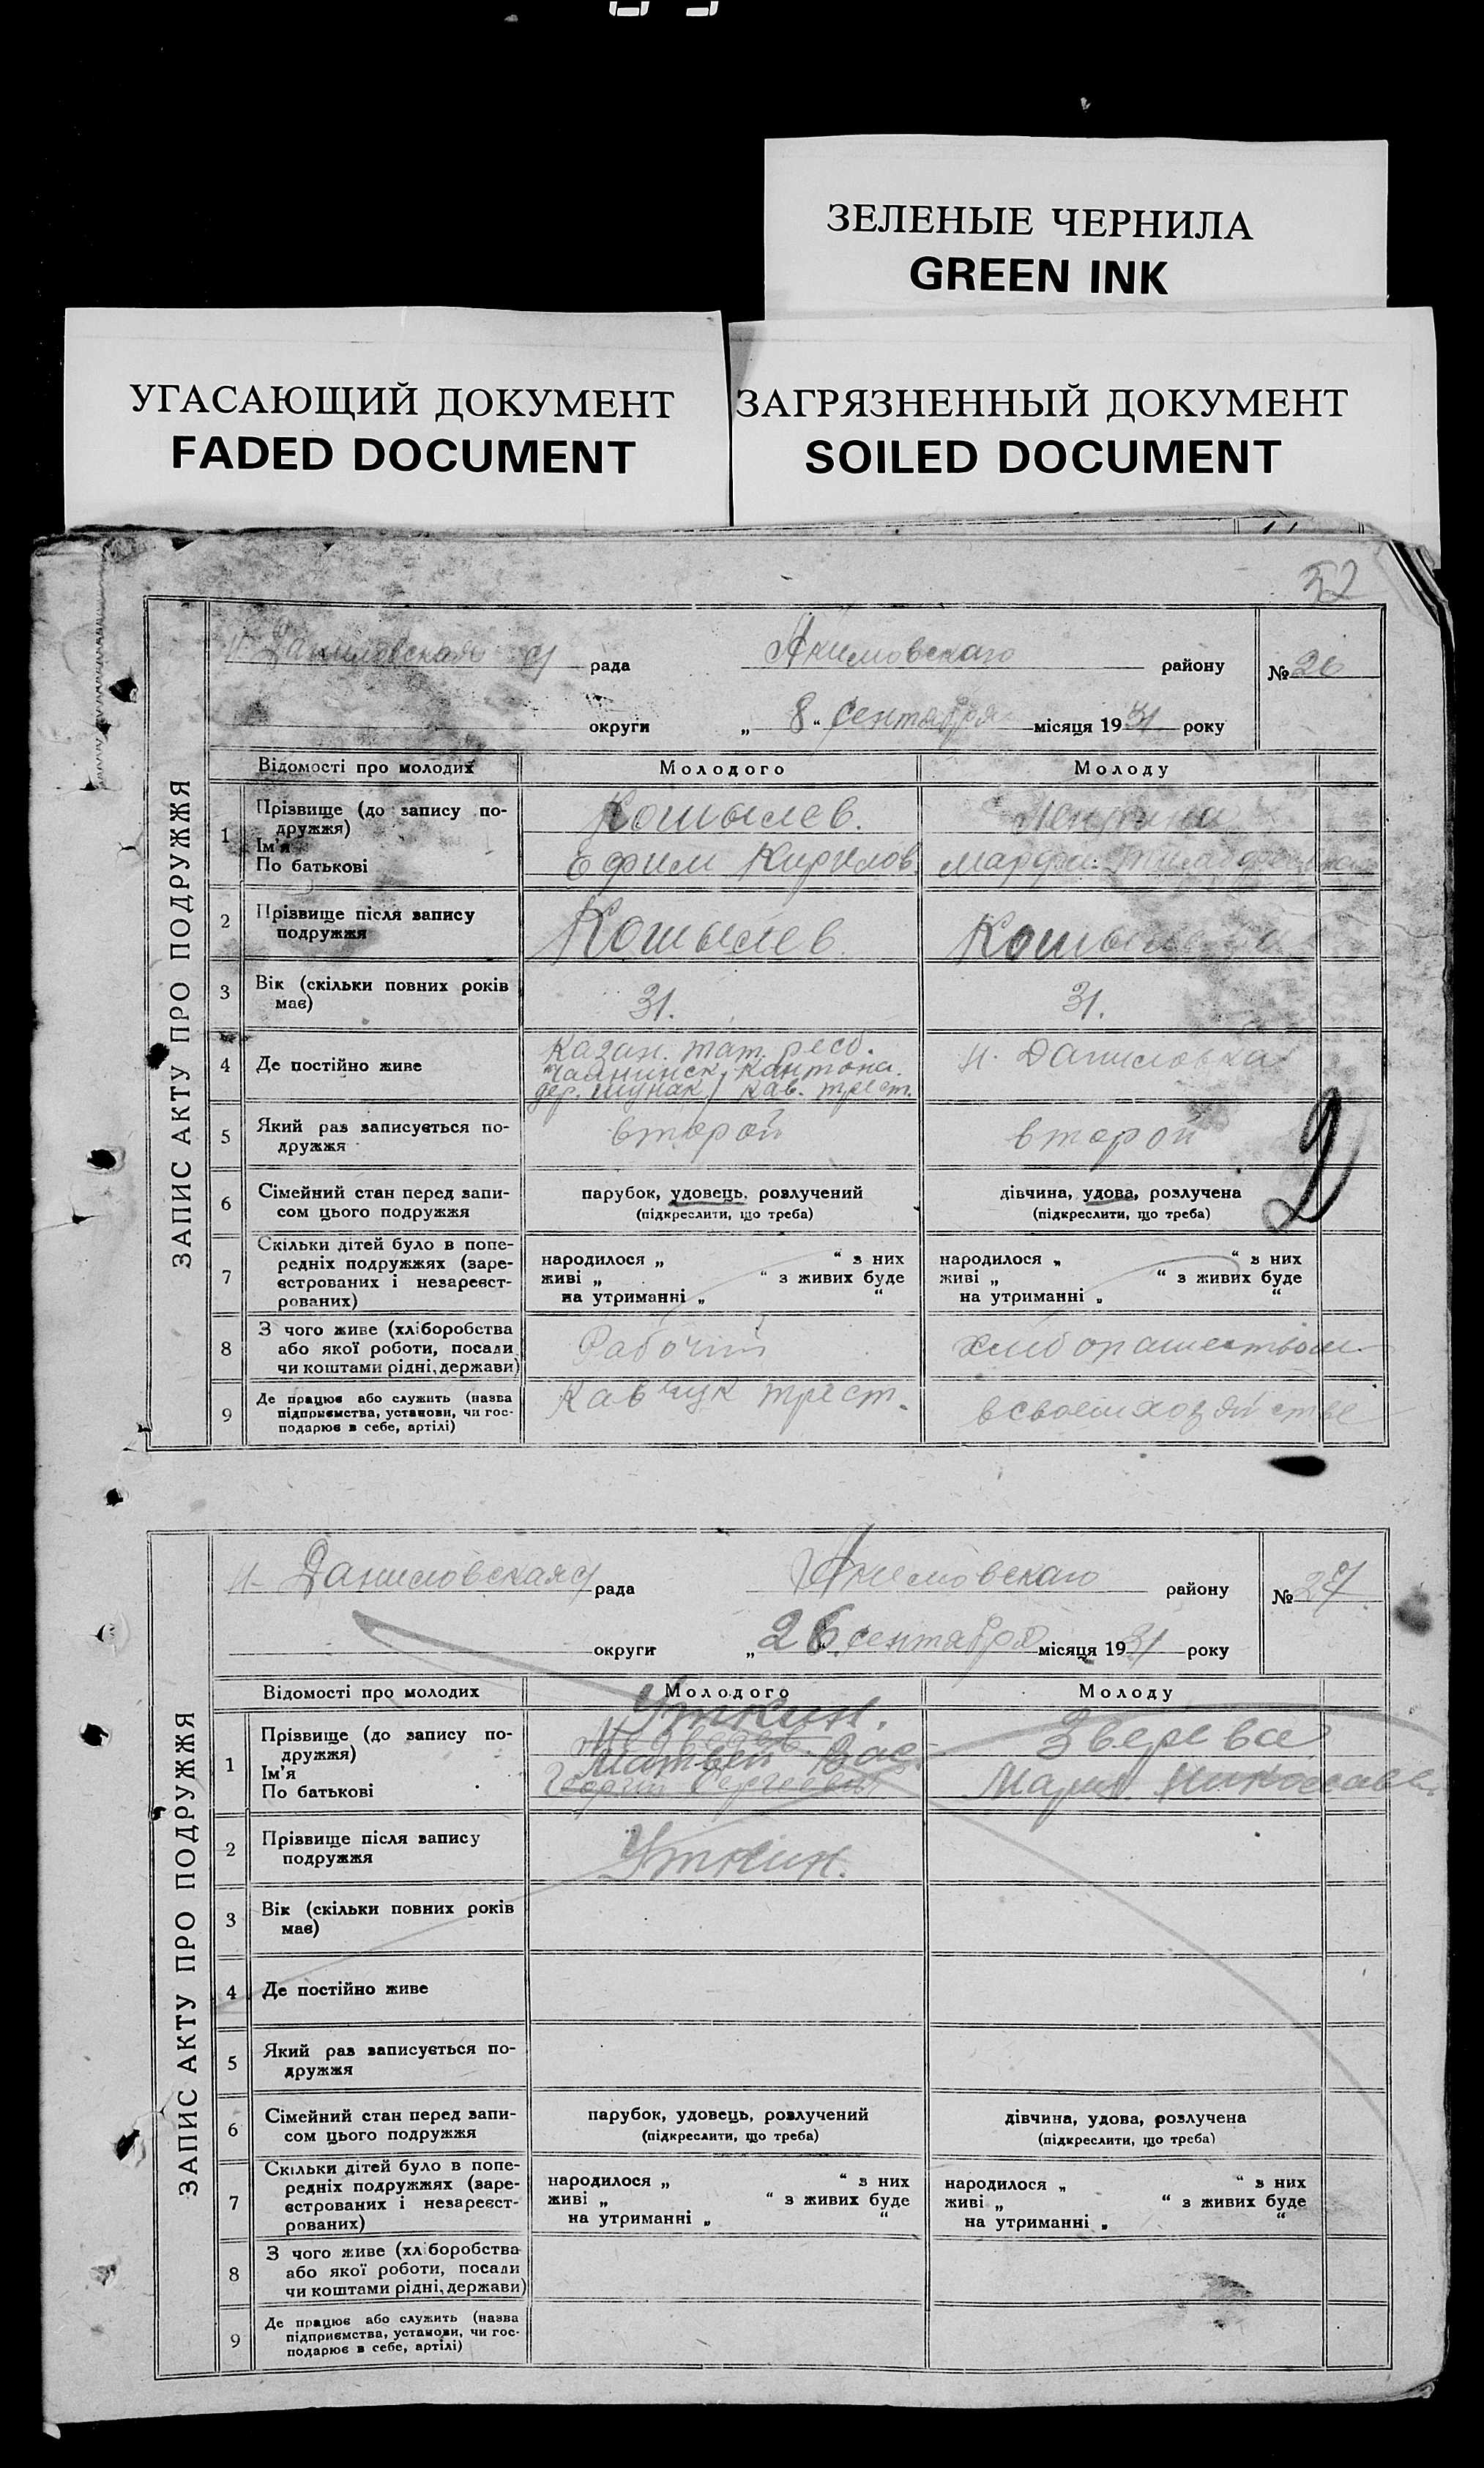 ЗЕЛЕНЫЕ ЧЕРНИЛА
GREEN INK
УГАСАЮЩИЙ ДОКУМЕНТ
FADED DOCUMENT
ЗАГРЯЗНЕННЫЙ ДОКУМЕНТ
SOILED DOCUMENT
52
ЗАПИС АКТУ ПРО ПОДРУЖЖЯ
Н. Даниловская с/ рада Акимовскаго району № 26
округи „ 8 “ сентября місяця 1931 року
Відомості про молодих Молодого Молоду
1 Прізвище (до запису по-
дружжя)
Ім'я
По батькові
Кошылев.
Ефим Кирилов.
Марфа
2 Прізвище після запису
подружжя
Кошылев
3 Вік (скільки повних років
має)
31. 31.
4 Де постійно живе
Казан. тат. респ.
кантона.
дер. Шунак / Кав. трест.
Н. Даниловка
5 Який раз записується по-
дружжя
второй второй
2
6 Сімейний стан перед запи-
сом цього подружжя
парубок, удовець, розлучений
(підкреслити, що треба)
дівчина, удова, розлучена
(підкреслити, що треба)
7 Скільки дітей було в попе-
редніх подружжях (заре-
єстрованих і незареєст-
рованих)
народилося „ “ з них
живі „ “ з живих буде
на утриманні „ “
народилося „ “ з них
живі „ “ з живих буде
на утриманні „ “
8 З чого живе (хліборобства
або якої роботи, посади
чи коштами рідні, держави)
Рабочий
9 Де працює або служить (назва
підприємства, установи, чи гос-
подарює в себе, артілі)
Кавчук трест.
в своем хозяйстве
ЗАПИС АКТУ ПРО ПОДРУЖЖЯ
Н- Даниловская с/ рада Акимовскаго району № 27
округи „ 26 “ сентября місяця 1931 року
Відомості про молодих Молодого Молоду
1 Прізвище (до запису по-
дружжя)
Ім'я
По батькові
Уткин.
Медведев
Матвей Вас
Георгий Сергеевич
Зверева
Мария Николаев.
2 Прізвище після запису
подружжя
Уткин.
3 Вік (скільки повних років
має)
4 Де постійно живе
5 Який раз записується по-
дружжя
6 Сімейний стан перед запи-
сом цього подружжя
парубок, удовець, розлучений
(підкреслити, що треба)
дівчина, удова, розлучена
(підкреслити, що треба)
7 Скільки дітей було в попе-
редніх подружжях (заре-
єстрованих і незареєст-
рованих)
народилося „ “ з них
живі „ “ з живих буде
на утриманні „ “
народилося „ “ з них
живі „ “ з живих буде
на утриманні „ “
8 З чого живе (хліборобства
або якої роботи, посади
чи коштами рідні, держави)
9 Де працює або служить (назва
підприємства, установи, чи гос-
подарює в себе, артілі)